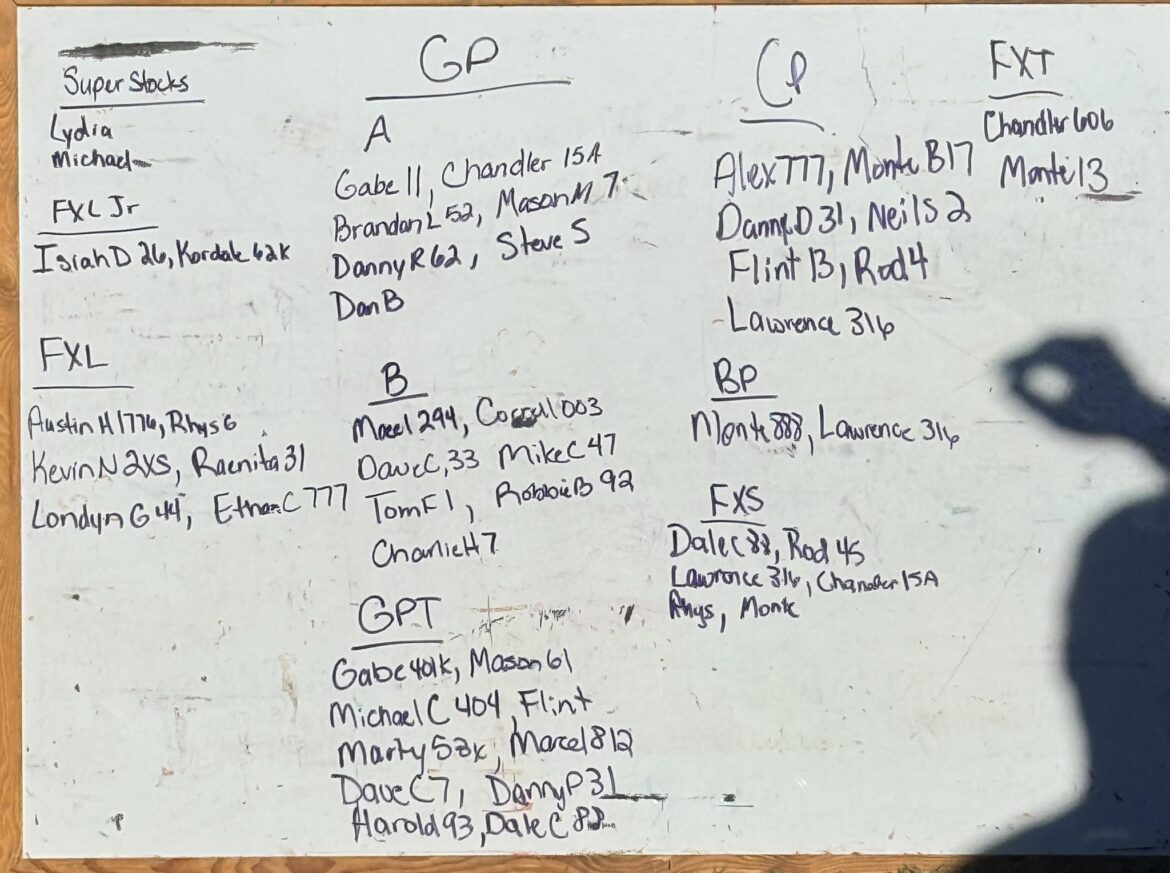 Super Stocks
Lydia
Michael
FXL Jr
Isiah D 26, Kordale 62K
FXL
Austin H 1776, Rhys 6
Kevin N 2XS, Raenita 31
Londyn G 44, Ethan C 777
GP
A
Gabe 11, Chandler 15A
Brandan L 52, Mason M 7
Danny R 62, Steve S
Dan B
B
294, 003
Dave C, 33 Mike C 47
Tom F 1, Robbie B 92
Charlie H 7
GPT
Gabe 401K, Mason 61
Michael C 404, Flint
Marty 52x, Marcel 812
Dave C 7, Danny P 31
Harold 93, Dale C 88
CP
Alex 777, Monte B 17
Danny D 31, Neil S 2
Flint 13, Rod 4
Lawrence 316
BP
Monte 888, Lawrence 316
FXS
Dale C 88, Rod 45
Lawrence 316, Chandler 15A
Rhys, Monte
FXT
Chandler 606
Monte 13